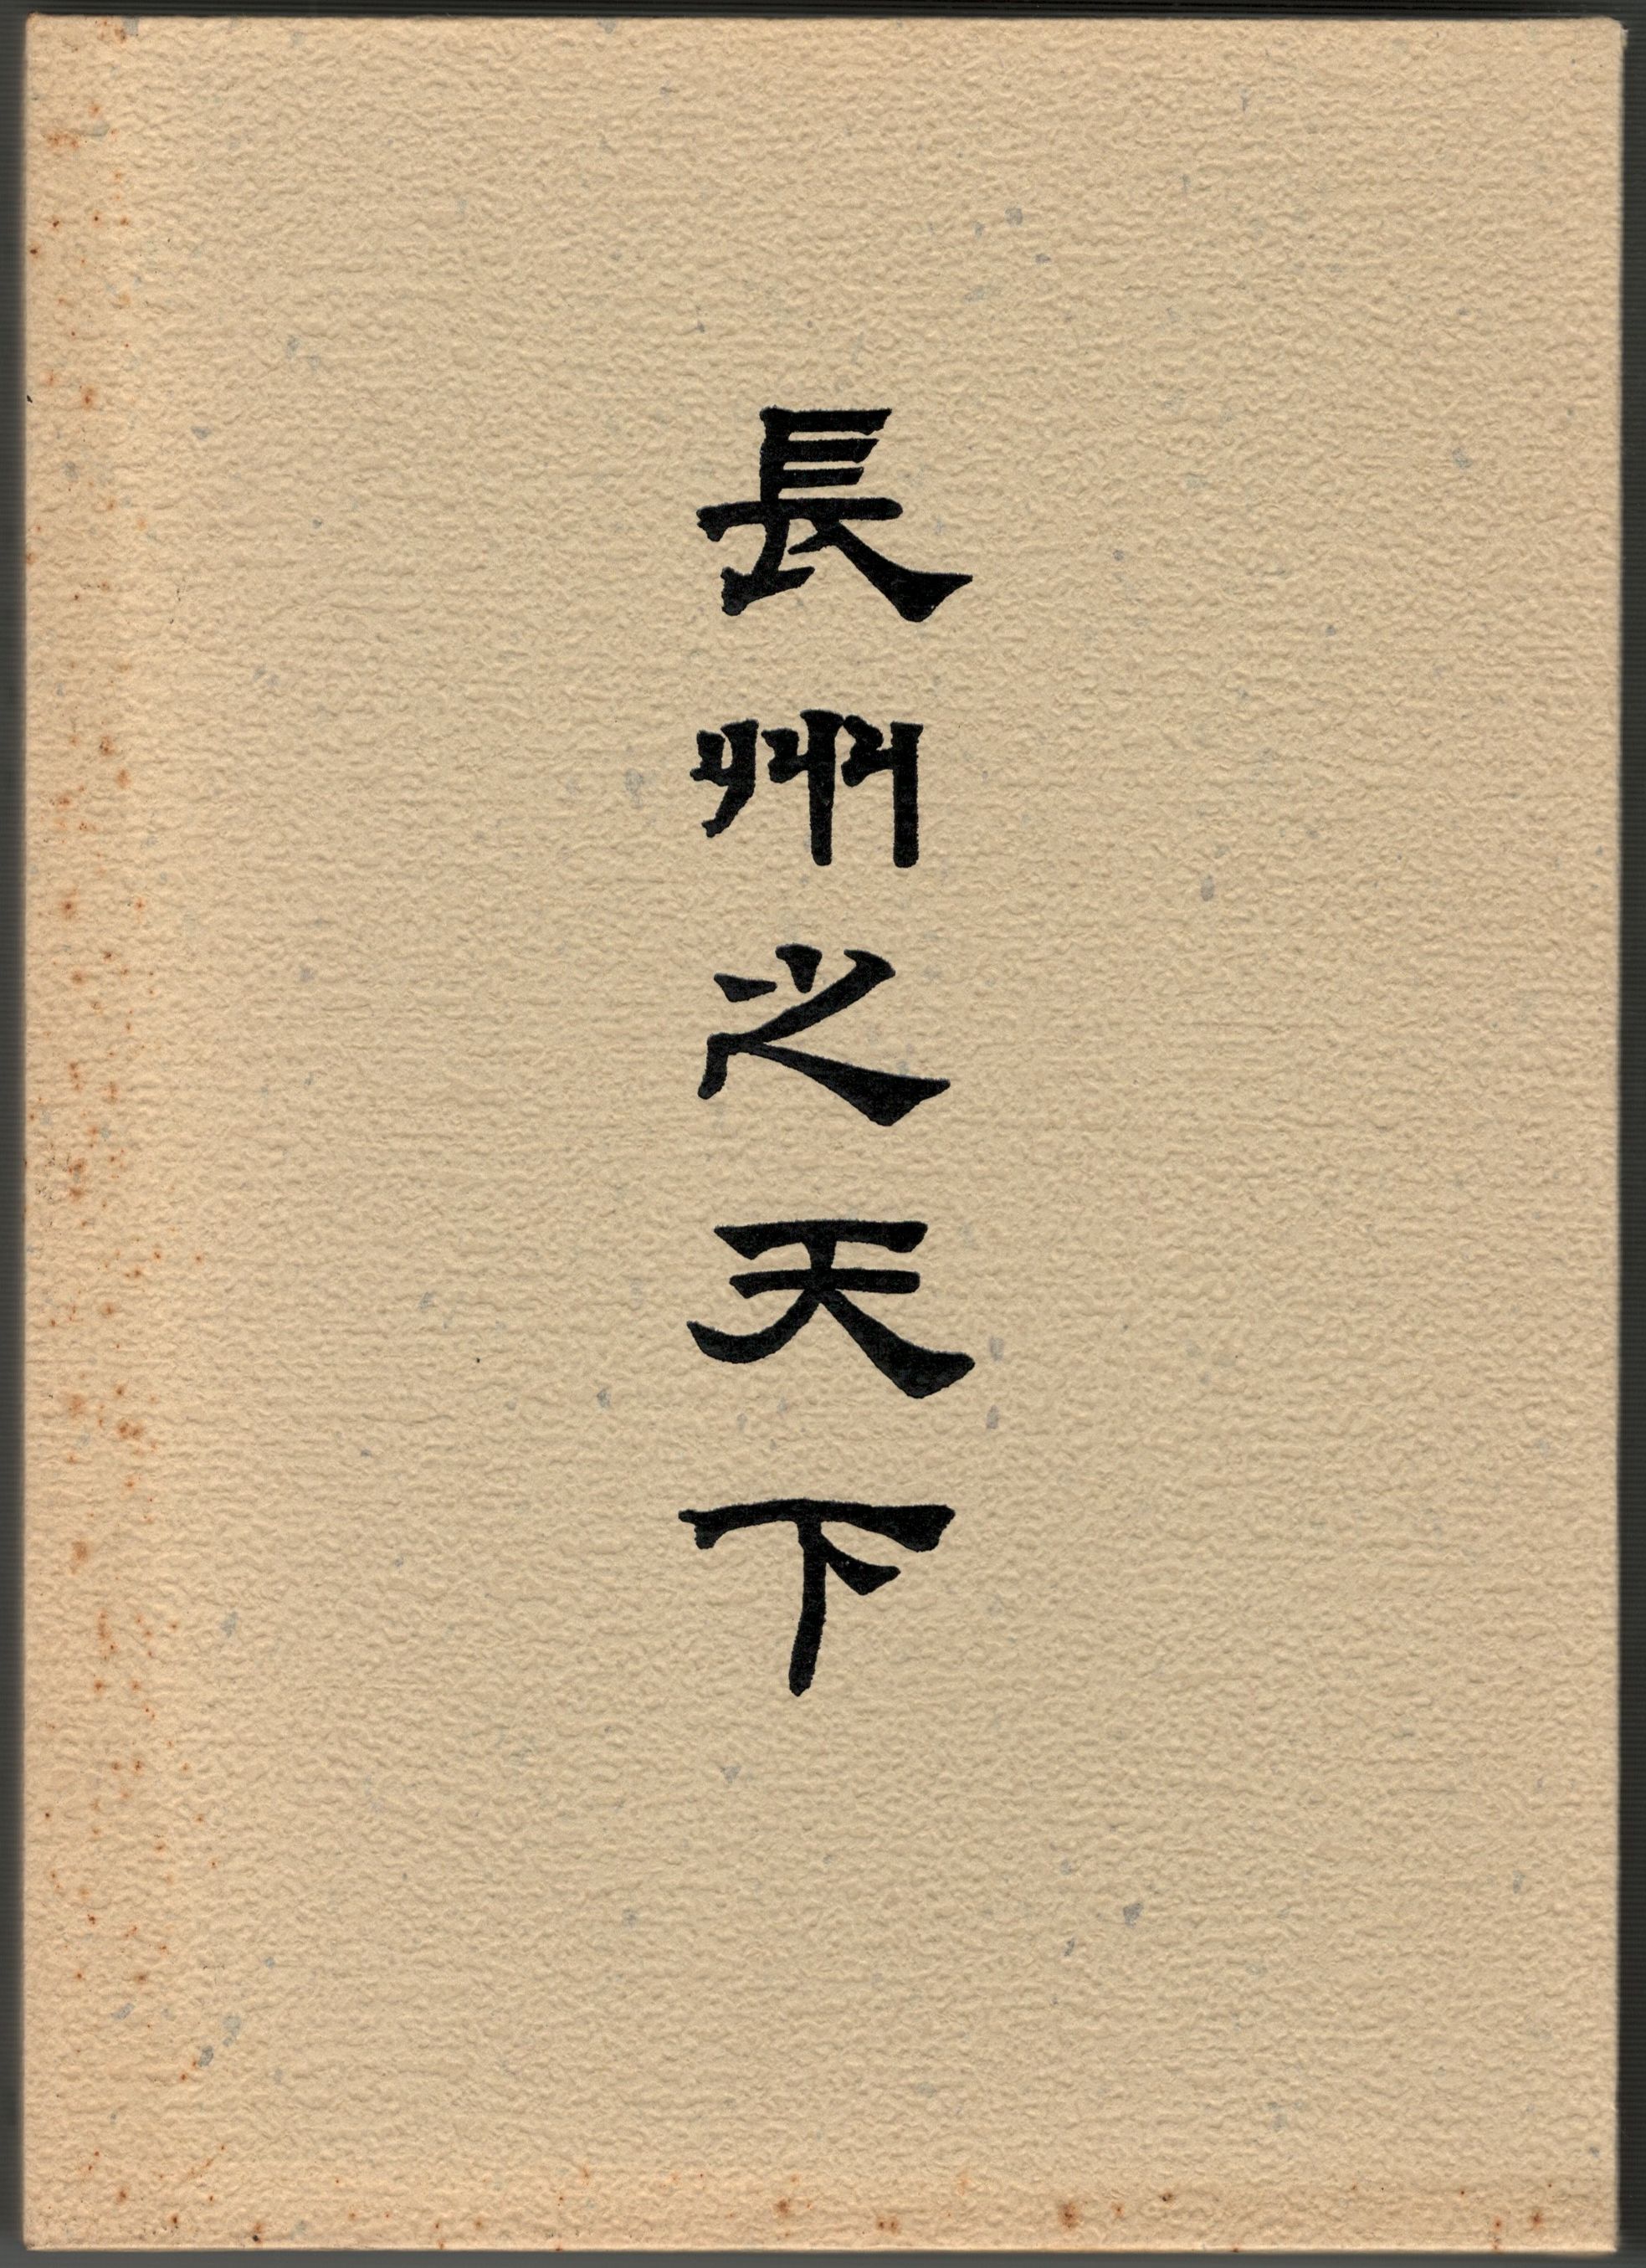 長州之天下